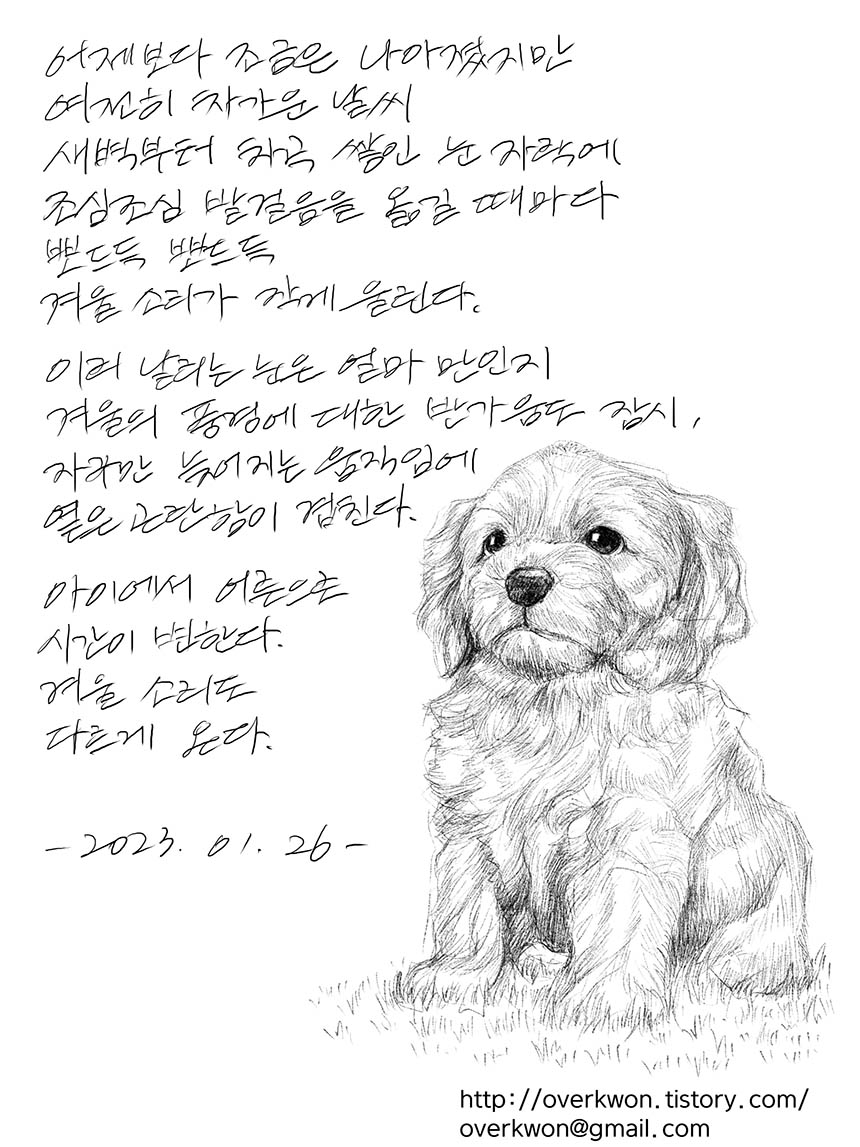 어제보다 조금은 나아졌지만
여전히 차가운 날씨
새벽부터 차곡 쌓인 눈 자락에
조심조심 발걸음을 옮길 때마다
뽀드득 뽀드득
겨울 소리가 작게 울린다.
이리 날리는 눈은 얼마 만인지
겨울의 풍경에 대한 반가움도 잠시,
자꾸만 늦어지는 움직임에
옅은 고단함이 겹친다.
아이에서 어른으로
시간이 변한다.
겨울 소리도
다르게 온다.
-2023. 01. 26-
http://overkwon.tistory.com/
overkwon@gmail.com